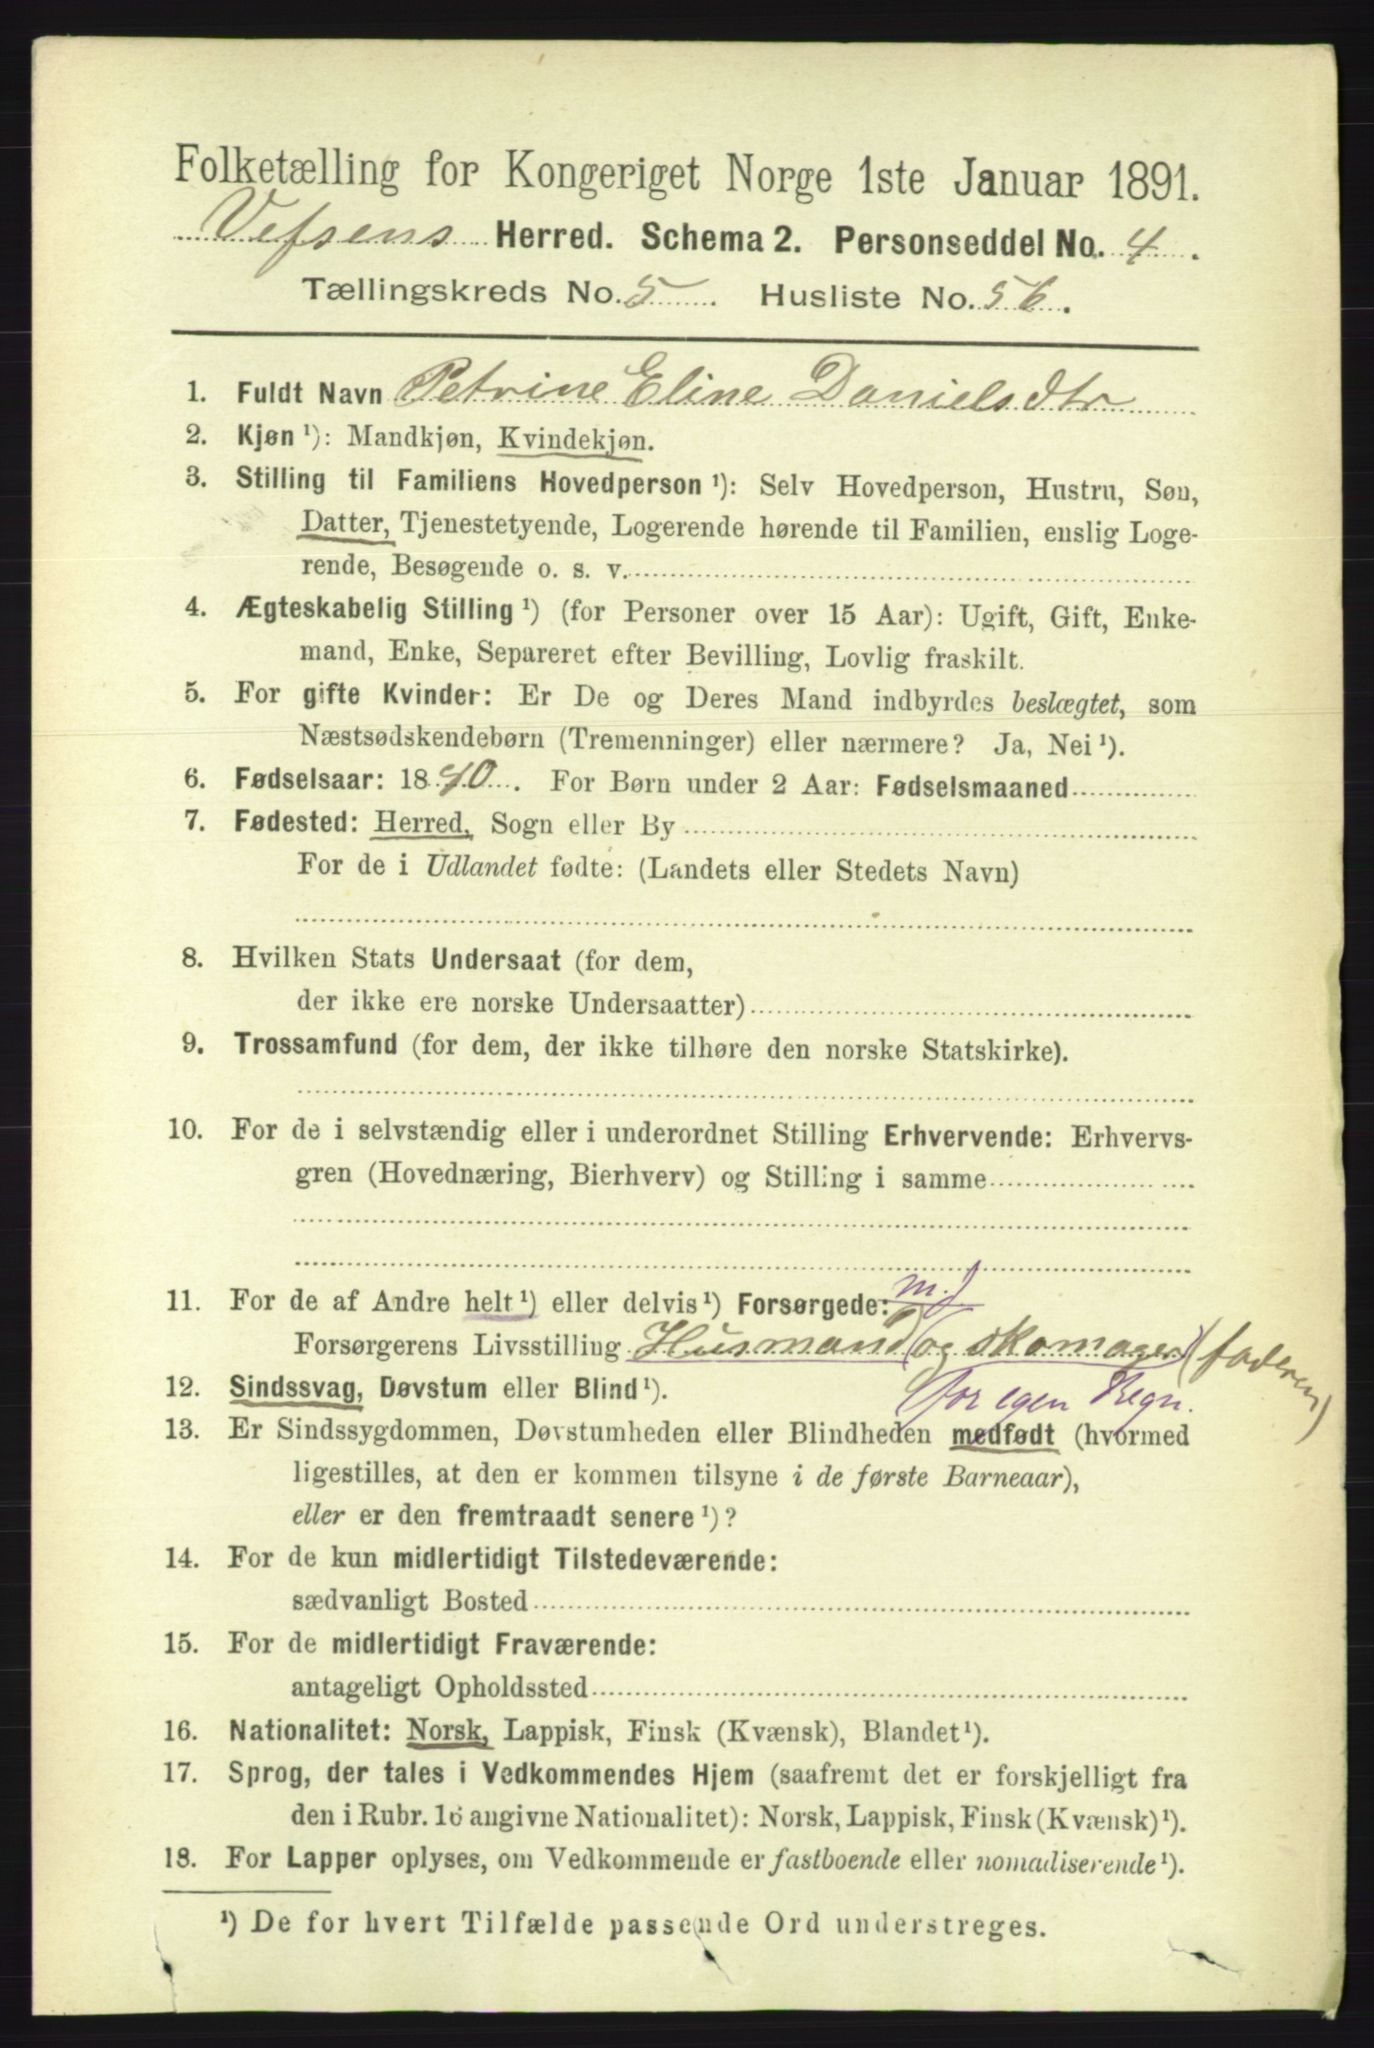 Folketælling for Kongeriget Norge 1ste Januar 1891.
Vefsens Herred. Schema 2. Personseddel No. 4.
Tællingskreds No. 5. Husliste No. 56.
1. Fuldt Navn Petrine Eline Danielsdtr
2. Kjøn ¹): Mandkjøn, Kvindekjøn.
3. Stilling til Familiens Hovedperson ¹): Selv Hovedperson, Hustru, Søn,
Datter, Tjenestetyende, Logerende hørende til Familien, enslig Loge-
rende, Besøgende o. s. v.
4. Ægteskabelig Stilling ¹) (for Personer over 15 Aar): Ugift, Gift, Enke-
mand, Enke, Separeret efter Bevilling, Lovlig fraskilt.
5. For gifte Kvinder: Er De og Deres Mand indbyrdes beslægtet, som
Næstsødskendebørn (Tremenninger) eller nærmere? Ja, Nei ¹).
6. Fødselsaar: 1840. For Børn under 2 Aar: Fødselsmaaned
7. Fødested: Herred, Sogn eller By
For de i Udlandet fødte: (Landets eller Stedets Navn)
8. Hvilken Stats Undersaat (for dem,
der ikke ere norske Undersaatter)
9. Trossamfund (for dem, der ikke tilhøre den norske Statskirke).
10. For de i selvstændig eller i underordnet Stilling Erhvervende: Erhvervs-
gren (Hovednæring, Bierhverv) og Stilling i samme
m. J
11. For de af Andre helt ¹) eller delvis ¹) Forsørgede:
Forsørgerens Livsstilling Husmand (og skomager) (faderen)
for egen Regn.
12. Sindssvag, Døvstum eller Blind ¹).
13. Er Sindssygdommen, Døvstumheden eller Blindheden medfødt (hvormed
ligestilles, at den er kommen tilsyne i de første Barneaar),
eller er den fremtraadt senere ¹)?
14. For de kun midlertidigt Tilstedeværende:
sædvanligt Bosted
15. For de midlertidigt Fraværende:
antageligt Opholdssted
16. Nationalitet: Norsk, Lappisk, Finsk (Kvænsk), Blandet ¹).
17. Sprog, der tales i Vedkommendes Hjem (saafremt det er forskjelligt fra
den i Rubr. 16 angivne Nationalitet): Norsk, Lappisk, Finsk (Kvænsk) ¹).
18. For Lapper oplyses, om Vedkommende er fastboende eller nomadiserende ¹).
¹) De for hvert Tilfælde passende Ord understreges.